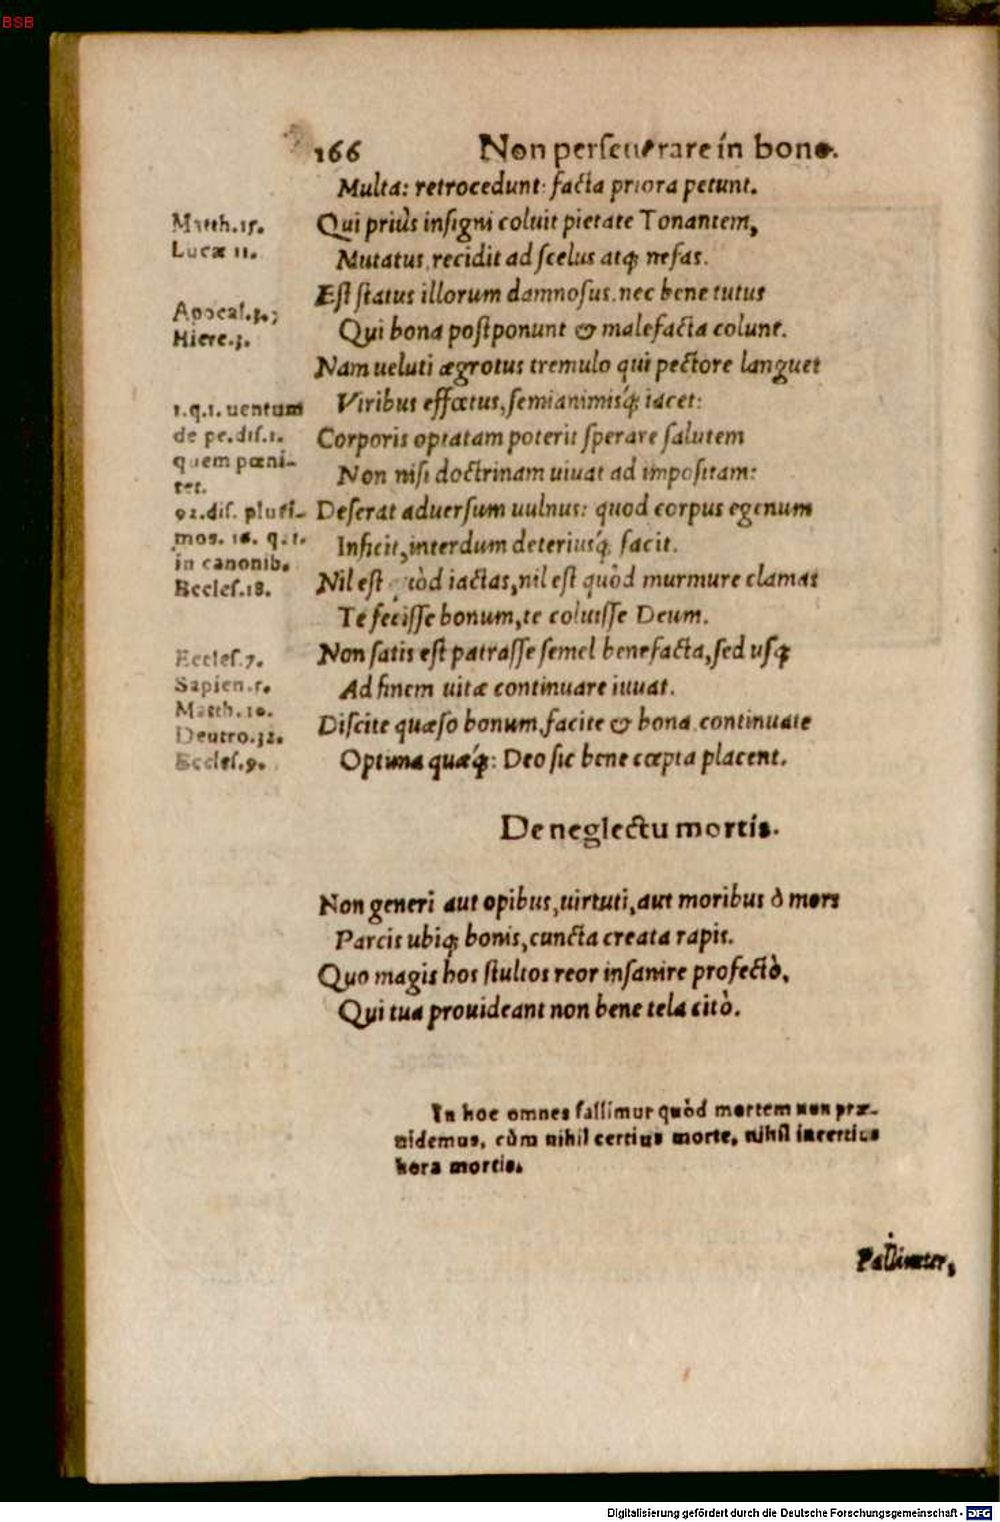 BSB
166 Non perseuerare in bono.
Multa: retrocedunt: facta priora petunt.
Matth.15.
Lucæ 11.
Qui priùs insigni coluit pietate Tonantem,
Mutatus, recidit ad scelus atq; nefas.
Apocal.3.;
Hiere.3.
Est status illorum damnosus, nec bene tutus
Qui bona postponunt & malefacta colunt.
Nam ueluti ægrotus tremulo qui pectore languet
1.q.1. uentum
de pe.dis.1.
quem pœni-
tet.
Viribus effœtus, semianimisq́; iacet:
Corporis optatam poterit sperare salutem
Non nisi doctrinam uiuat ad impositam:
92.dis. pluri-
mos. 16. q.1.
in canonib.
Eccles.18.
Deserat aduersum uulnus: quod corpus egenum
Inficit, interdum deteriusq́; facit.
Nil est quòd iactas, nil est quòd murmure clamas
Te fecisse bonum, te coluisse Deum.
Eccles.7.
Sapien.5.
Matth.10.
Deutro.32.
Eccles.9.
Non satis est patrasse semel benefacta, sed usq;
Ad finem uitæ continuare iuuat.
Discite quæso bonum, facite & bona continuate
Optima quæq́;: Deo sic bene cœpta placent.
De neglectu mortis.
Non generi aut opibus, uirtuti, aut moribus ô mors
Parcis ubiq; bonis, cuncta creata rapis.
Quo magis hos stultos reor insanire profectò,
Qui tua prouideant non bene tela citò.
In hoc omnes fallimur quòd mortem non præ-
uidemus, cùm nihil certius morte, nihil incertius
hora mortis.
Digitalisierung gefördert durch die Deutsche Forschungsgemeinschaft - DFG